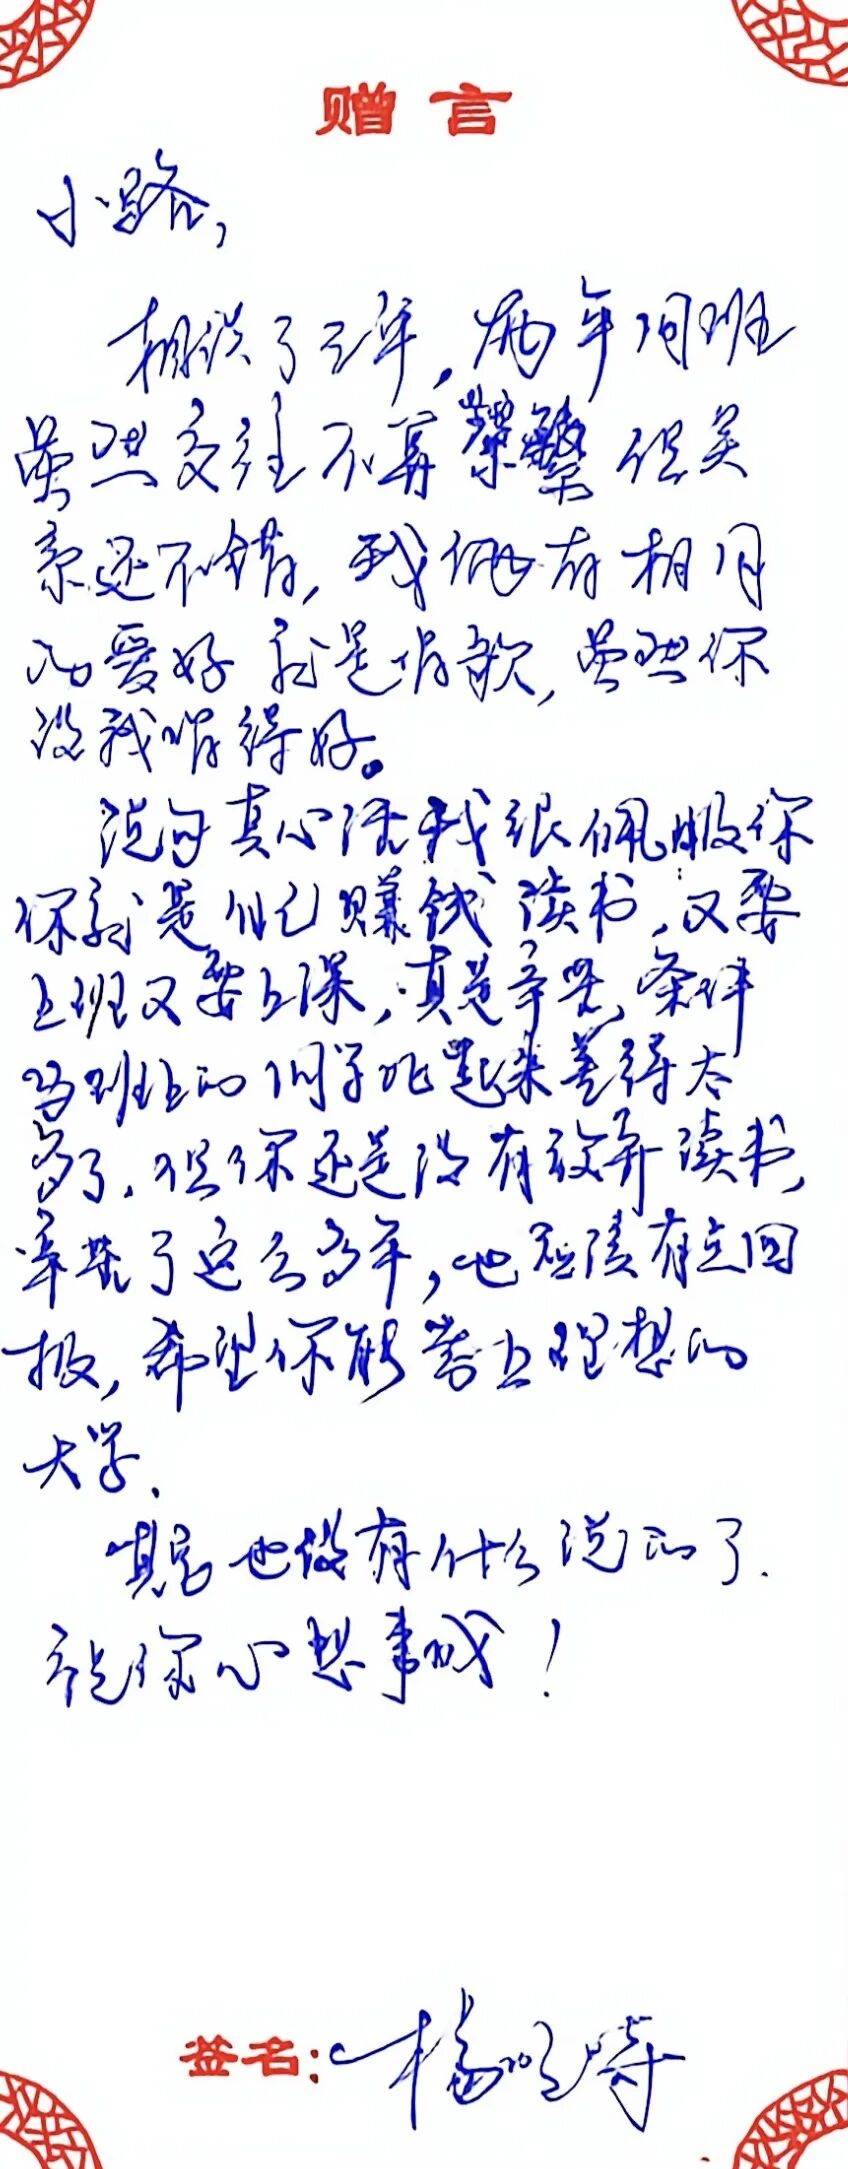 赠言
小路，
相识了三年，两年同班
虽然交往不算繁 但关
系还不错，我俩有相同
的爱好 就是唱歌，虽然你
没我唱得好。
说句真心话我很佩服你
你就是自己赚钱读书，又要
上班又要上课，真是辛苦，条件
与班上的同学比起来差得太
多了，但你还是没有放弃读书，
辛苦了这么多年，也应该有点回
报，希望你能考上理想的
大学.
其实也没有什么说的了.
祝你心想事成！
签名：杨